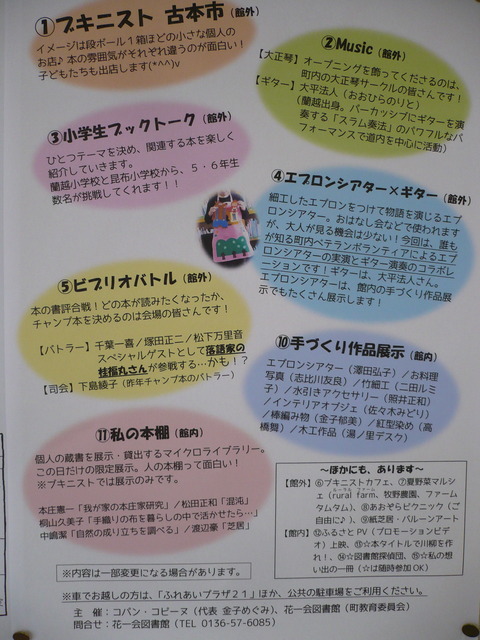 ①ブキニスト 古本市(館外)
イメージは段ボール1箱ほどの小さな個人の
お店♪ 本の雰囲気がそれぞれ違うのが面白い!
子どもたちも出店します(*^^)v
②Music(館外)
【大正琴】オープニングを飾ってくださるのは、
町内の大正琴サークルの皆さんです!
【ギター】大平法人(おおひらのりと)
(蘭越出身。パーカッシブにギターを演
奏する「スラム奏法」のパワフルなパ
フォーマンスで道内を中心に活動)
③小学生ブックトーク(館外)
ひとつテーマを決め、関連する本を楽しく
紹介していきます。
蘭越小学校と昆布小学校から、5・6年生
数名が挑戦してくれます!!
④エプロンシアター×ギター(館外)
細工したエプロンをつけて物語を演じるエプ
ロンシアター。おはなし会などで使われます
が、大人が見る機会は少ない!今回は、誰も
が知る町内ベテランボランティアによるエプ
ロンシアターの実演とギター演奏のコラボレ
ーションです!ギターは、大平法人さん。
エプロンシアターは、館内の手づくり作品展
示でもたくさん展示します!
⑤ビブリオバトル(館外)
本の書評合戦!どの本が読みたくなったか、
チャンプ本を決めるのは会場の皆さんです!
【バトラー】千葉一喜/塚田正二/松下万里音
スペシャルゲストとして落語家の
桂福丸さんが参戦する…かも!?
【司会】下島綾子(昨年チャンプ本のバトラー)
⑩手づくり作品展示(館内)
エプロンシアター(澤田弘子)/お料理
写真(志比川友良)/竹細工(二田ルミ
子)/水引きアクセサリー(照井正和)
/インテリアオブジェ(佐々木みどり)
/棒編み物(金子郁美)/紅型染め(高
橋舞)/木工作品(湯ノ里デスク)
⑪私の本棚(館内)
個人の蔵書を展示・貸出するマイクロライブラリー。
この日だけの限定展示。人の本棚って面白い!
※ブキニストでは展示のみです。
本庄憲一「我が家の本庄家研究」/松田正和「混沌」
桐山久美子「手織りの布を暮らしの中で活かせたら…」
中嶋潔「自然の成り立ちを調べる」/渡辺豪「芝居」
~ほかにも、あります~
【館外】⑥ブキニストカフェ、⑦夏野菜マルシ
ェ(rural farm、牧野農園、ファーム
タムタム)、⑧あおぞらピクニック(ご
自由に♪)、⑨紙芝居・バルーンアート
【館内】⑫ふるさとPV(プロモーションビデ
オ)上映、⑬☆本タイトルで川柳を作
れ!、⑭☆図書館探偵団、⑮☆私の想
い出の一冊(☆は随時参加OK)
※内容は一部変更になる場合があります。
※車でお越しの方は、「ふれあいプラザ21」ほか、公共の駐車場をご利用ください。
主 催:コパン・コピーヌ(代表 金子めぐみ)、花一会図書館(町教育委員会)
問合せ:花一会図書館(TEL 0136-57-6085)